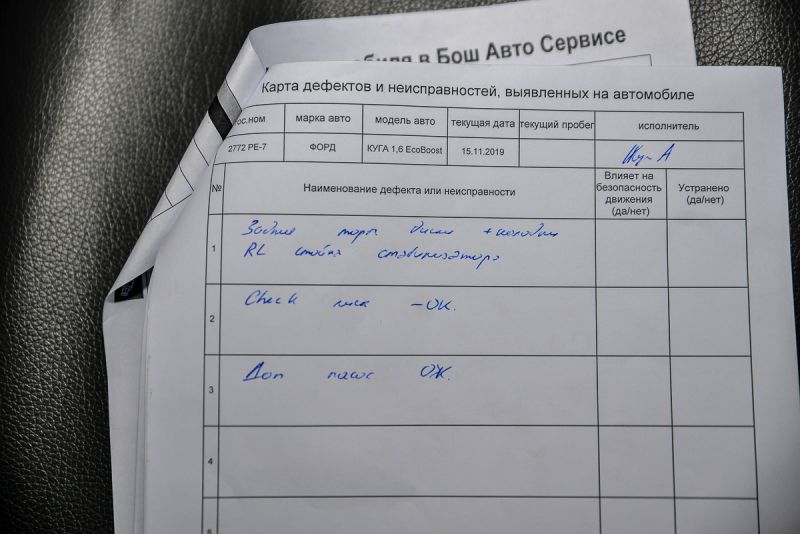 обиля в Бош Авто Сервисе
Карта дефектов и неисправностей, выявленных на автомобиле
ос.ном марка авто модель авто текущая дата текущий пробег исполнитель
2772 РЕ-7 ФОРД КУГА 1,6 EcoBoost 15.11.2019
№ Наименование дефекта или неисправности Влияет на безопасность движения (да/нет) Устранено (да/нет)
1 Задние торм диски + колодки
RL стойка стабилизатора
2 Check — ОК.
3 Доп насос ОЖ.
4